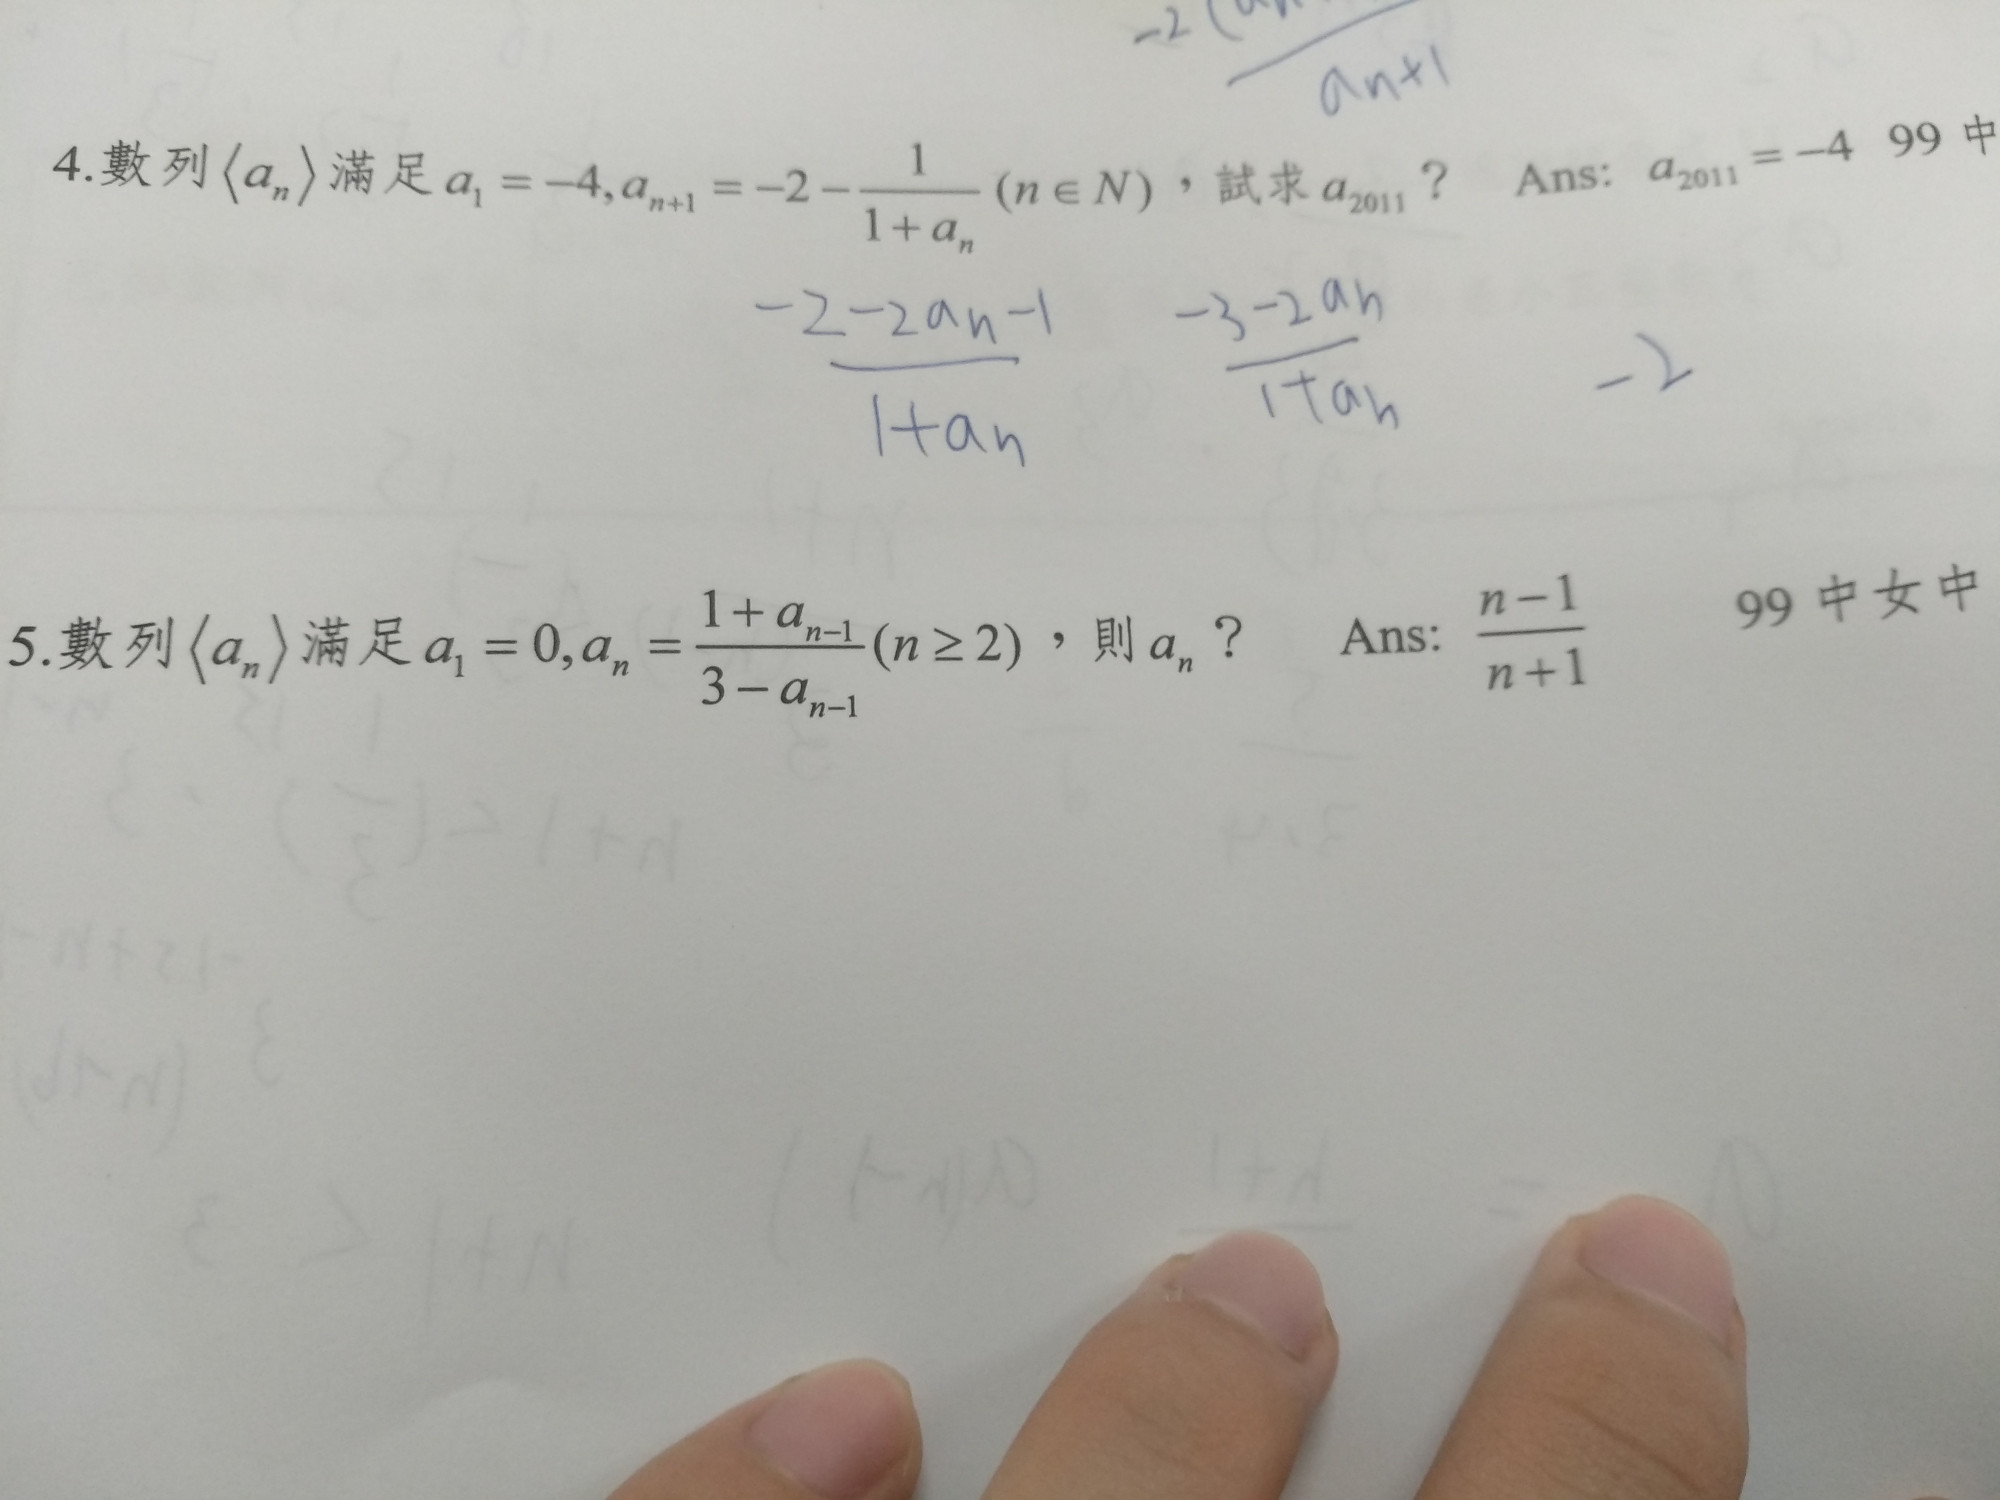 an+1
4.數列⟨aₙ⟩滿足 a₁ = −4, aₙ₊₁ = −2 − 1/(1+aₙ) (n ∈ N)，試求 a₂₀₁₁？ Ans: a₂₀₁₁ = −4 99 中
(-2-2an-1)/(1+an) (-3-2an)/(1+an) -2
5.數列⟨aₙ⟩滿足 a₁ = 0, aₙ = (1+aₙ₋₁)/(3−aₙ₋₁) (n ≥ 2)，則 aₙ？ Ans: (n−1)/(n+1) 99 中女中